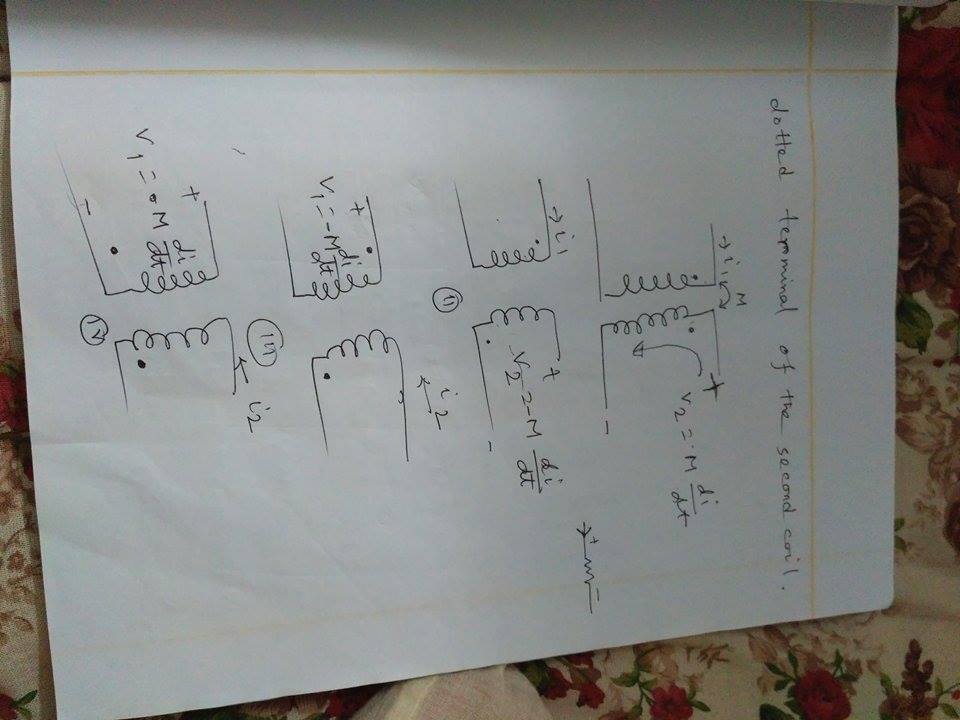 dotted terminal of the second coil.
→ i1 M
+
V2 = M di/dt
-
+ -
→ i1
+
V2 = -M di/dt
-
(ii)
i2
+
V1 = -M di/dt
(iii)
i2
+
V1 = M di/dt
-
(iv)